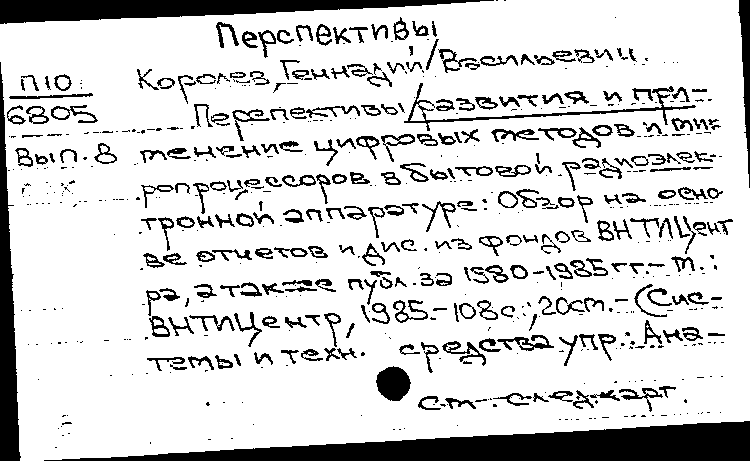 Перспективы
П10
6805
Вып. 8
Королев, Геннадий Васильевич.
Перспективы развития и при-
менение цифровых методов и мик-
ропроцессоров в бытовой радиоэлек-
тронной аппаратуре: Обзор на осно
ве отчетов и дис. из фондов ВНТИЦент
ра, а также публ. за 1980-1985 гг. - М.:
ВНТИЦентр, 1985. - 108 с.; 20 см. - (Сис-
темы и техн. средства упр.: Ана-
см. след. карт.